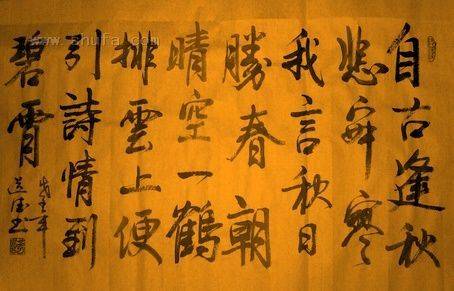 自古逢秋
悲寂寥
我言秋日
勝春朝
晴空一鶴
排雲上便
引詩情到
碧霄
戊子年